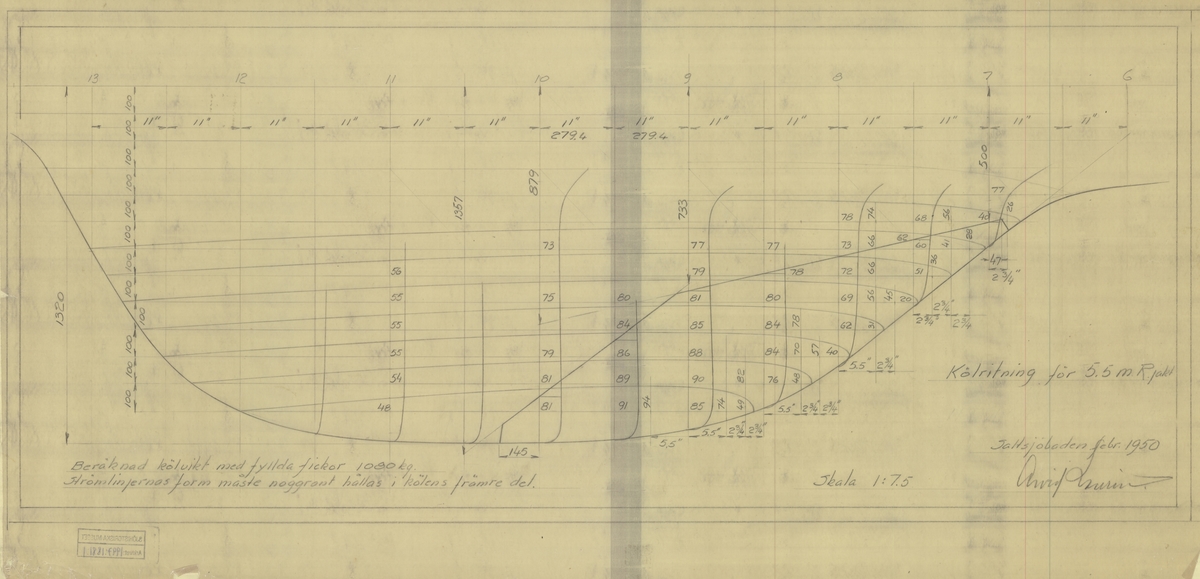 13 12 11 10 9 8 7 6
11" 11" 11" 11" 11" 11" 11" 11" 11" 11" 11" 11" 11" 11"
279.4 279.4
100 100 100 100 100 100 100 100 100 100 100 100
1320
1357
879
733
500
77 26
78 74 68 56 40
73 77 77 73 66 62 60 41 28
56 79 78 72 66 51 36 47
2 3/4"
55 75 80 81 80 69 56 45 20
2 3/4" 2 3/4" 2 3/4
55 84 85 84 78 62 31
55 79 86 88 84 70 57 40
5.5"
54 81 89 90 82 76 48
48 81 91 94 85 74 49
5.5" 2 3/4" 2 3/4"
5.5" 5.5"
145
Kölritning för 5.5 m R jakt
Beräknad kölvikt med fyllda fickor 1080 kg.
Strömlinjernas form måste noggrant hållas i kölens främre del.
Skala 1:7.5
Saltsjöbaden febr. 1950